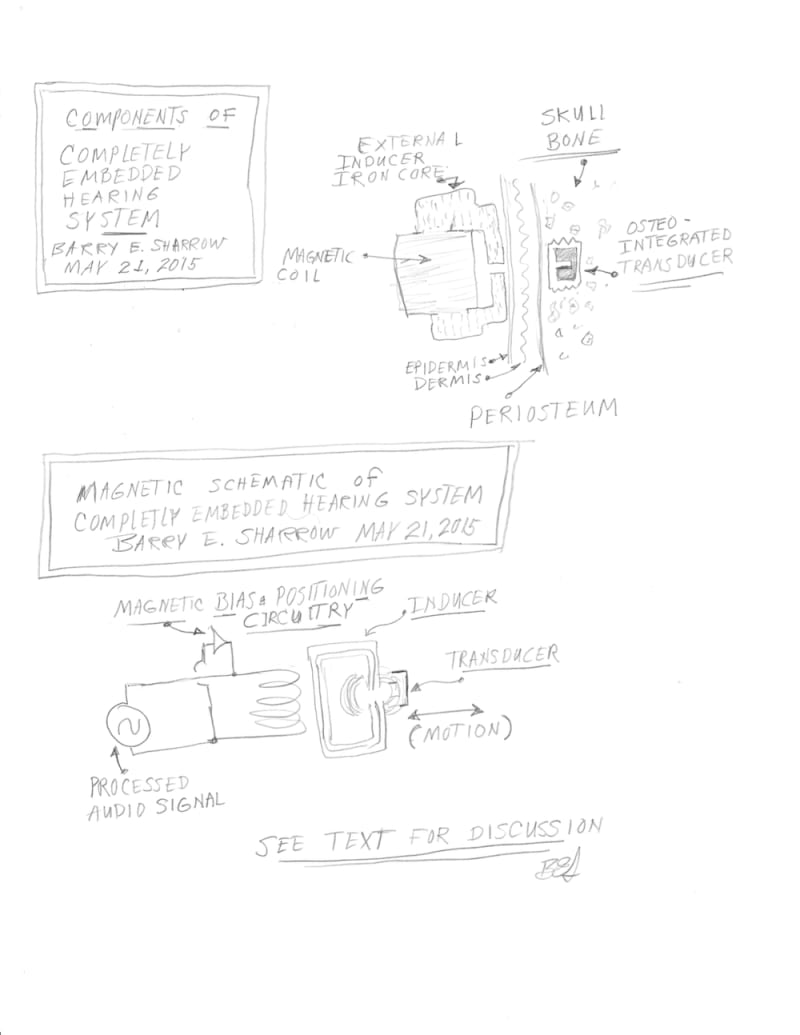 COMPONENTS OF
COMPLETELY
EMBEDDED
HEARING
SYSTEM
BARRY E. SHARROW
MAY 21, 2015
EXTERNAL
INDUCER
IRON CORE
MAGNETIC
COIL
SKULL
BONE
OSTEO-
INTEGRATED
TRANSDUCER
EPIDERMIS
DERMIS
PERIOSTEUM
MAGNETIC SCHEMATIC OF
COMPLETLY EMBEDDED HEARING SYSTEM
BARRY E. SHARROW MAY 21, 2015
MAGNETIC BIAS & POSITIONING
CIRCUITRY
INDUCER
TRANSDUCER
(MOTION)
PROCESSED
AUDIO SIGNAL
SEE TEXT FOR DISCUSSION
BES